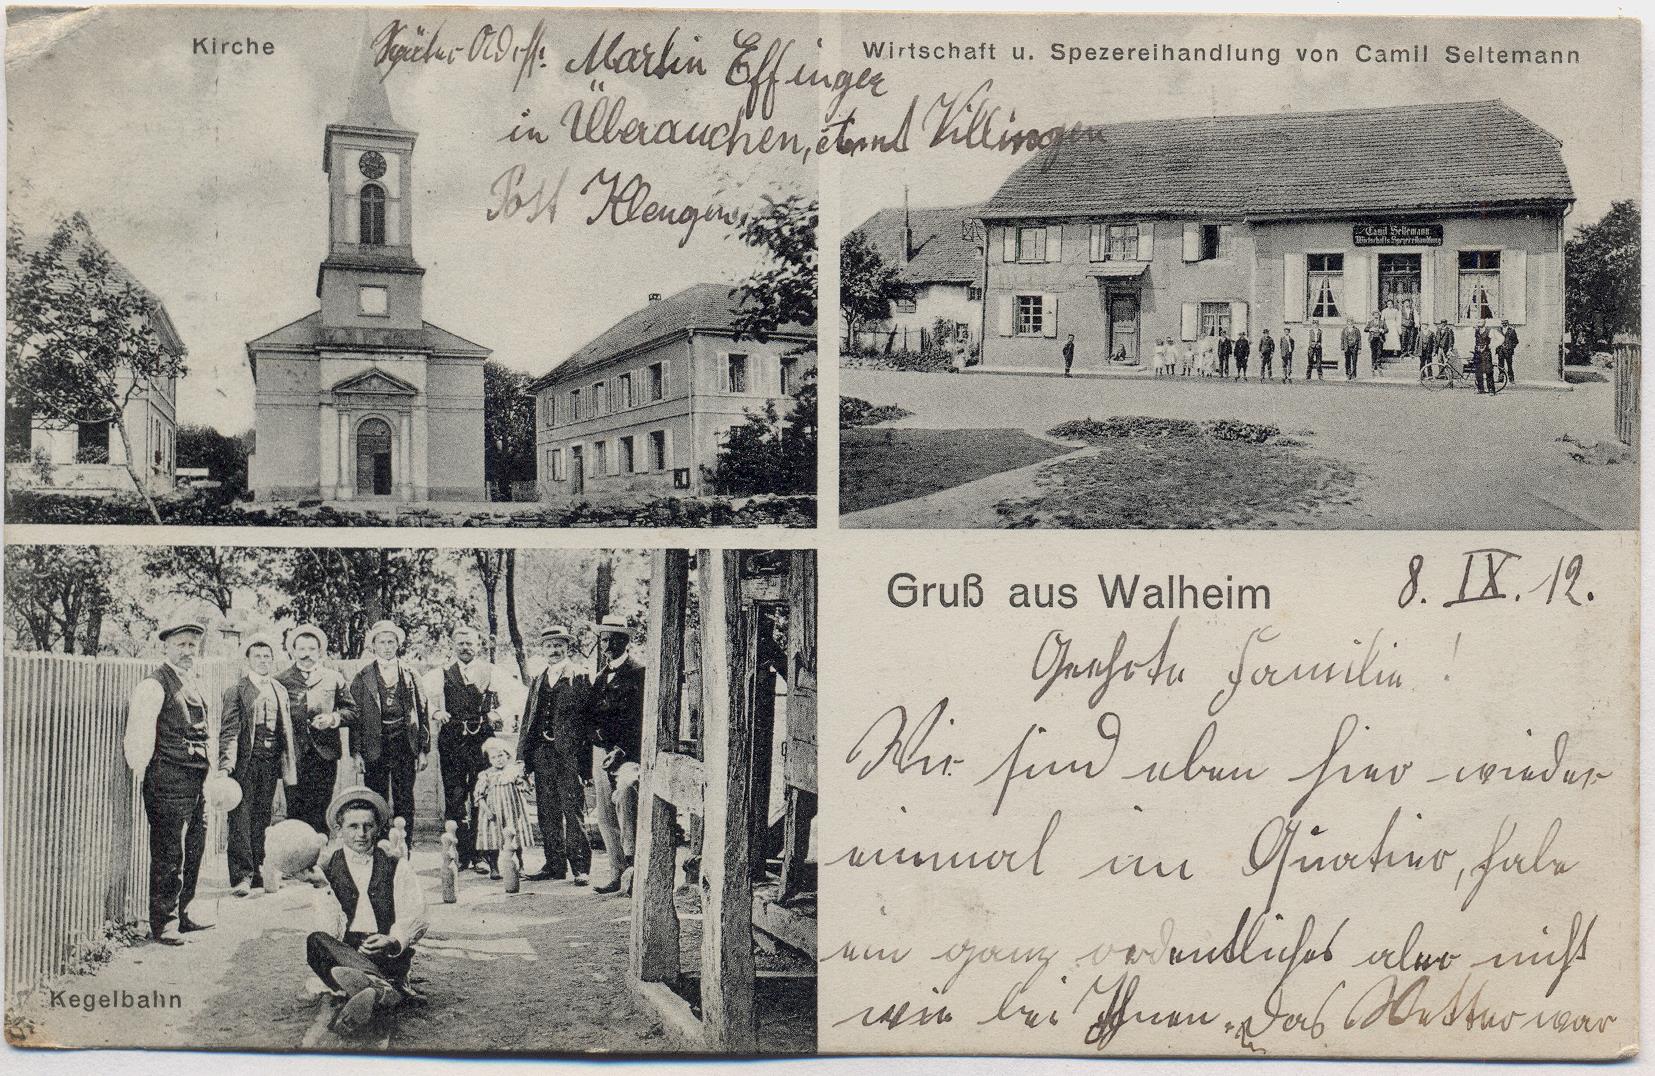 Kirche
Später Adr.: Martin Effinger
in Überauchen, Villingen
Post Klengen
Wirtschaft u. Spezereihandlung von Camil Seltemann
Camil Seltemann
Wirtschaft & Spezereihandlung
Kegelbahn
Gruß aus Walheim
8. IX. 12.
Geehrte Familie!
Wir sind eben hier wieder
einmal im Quatier, habe
ein ganz ordentliches aber nicht
wie bei Ihnen. Das Wetter war